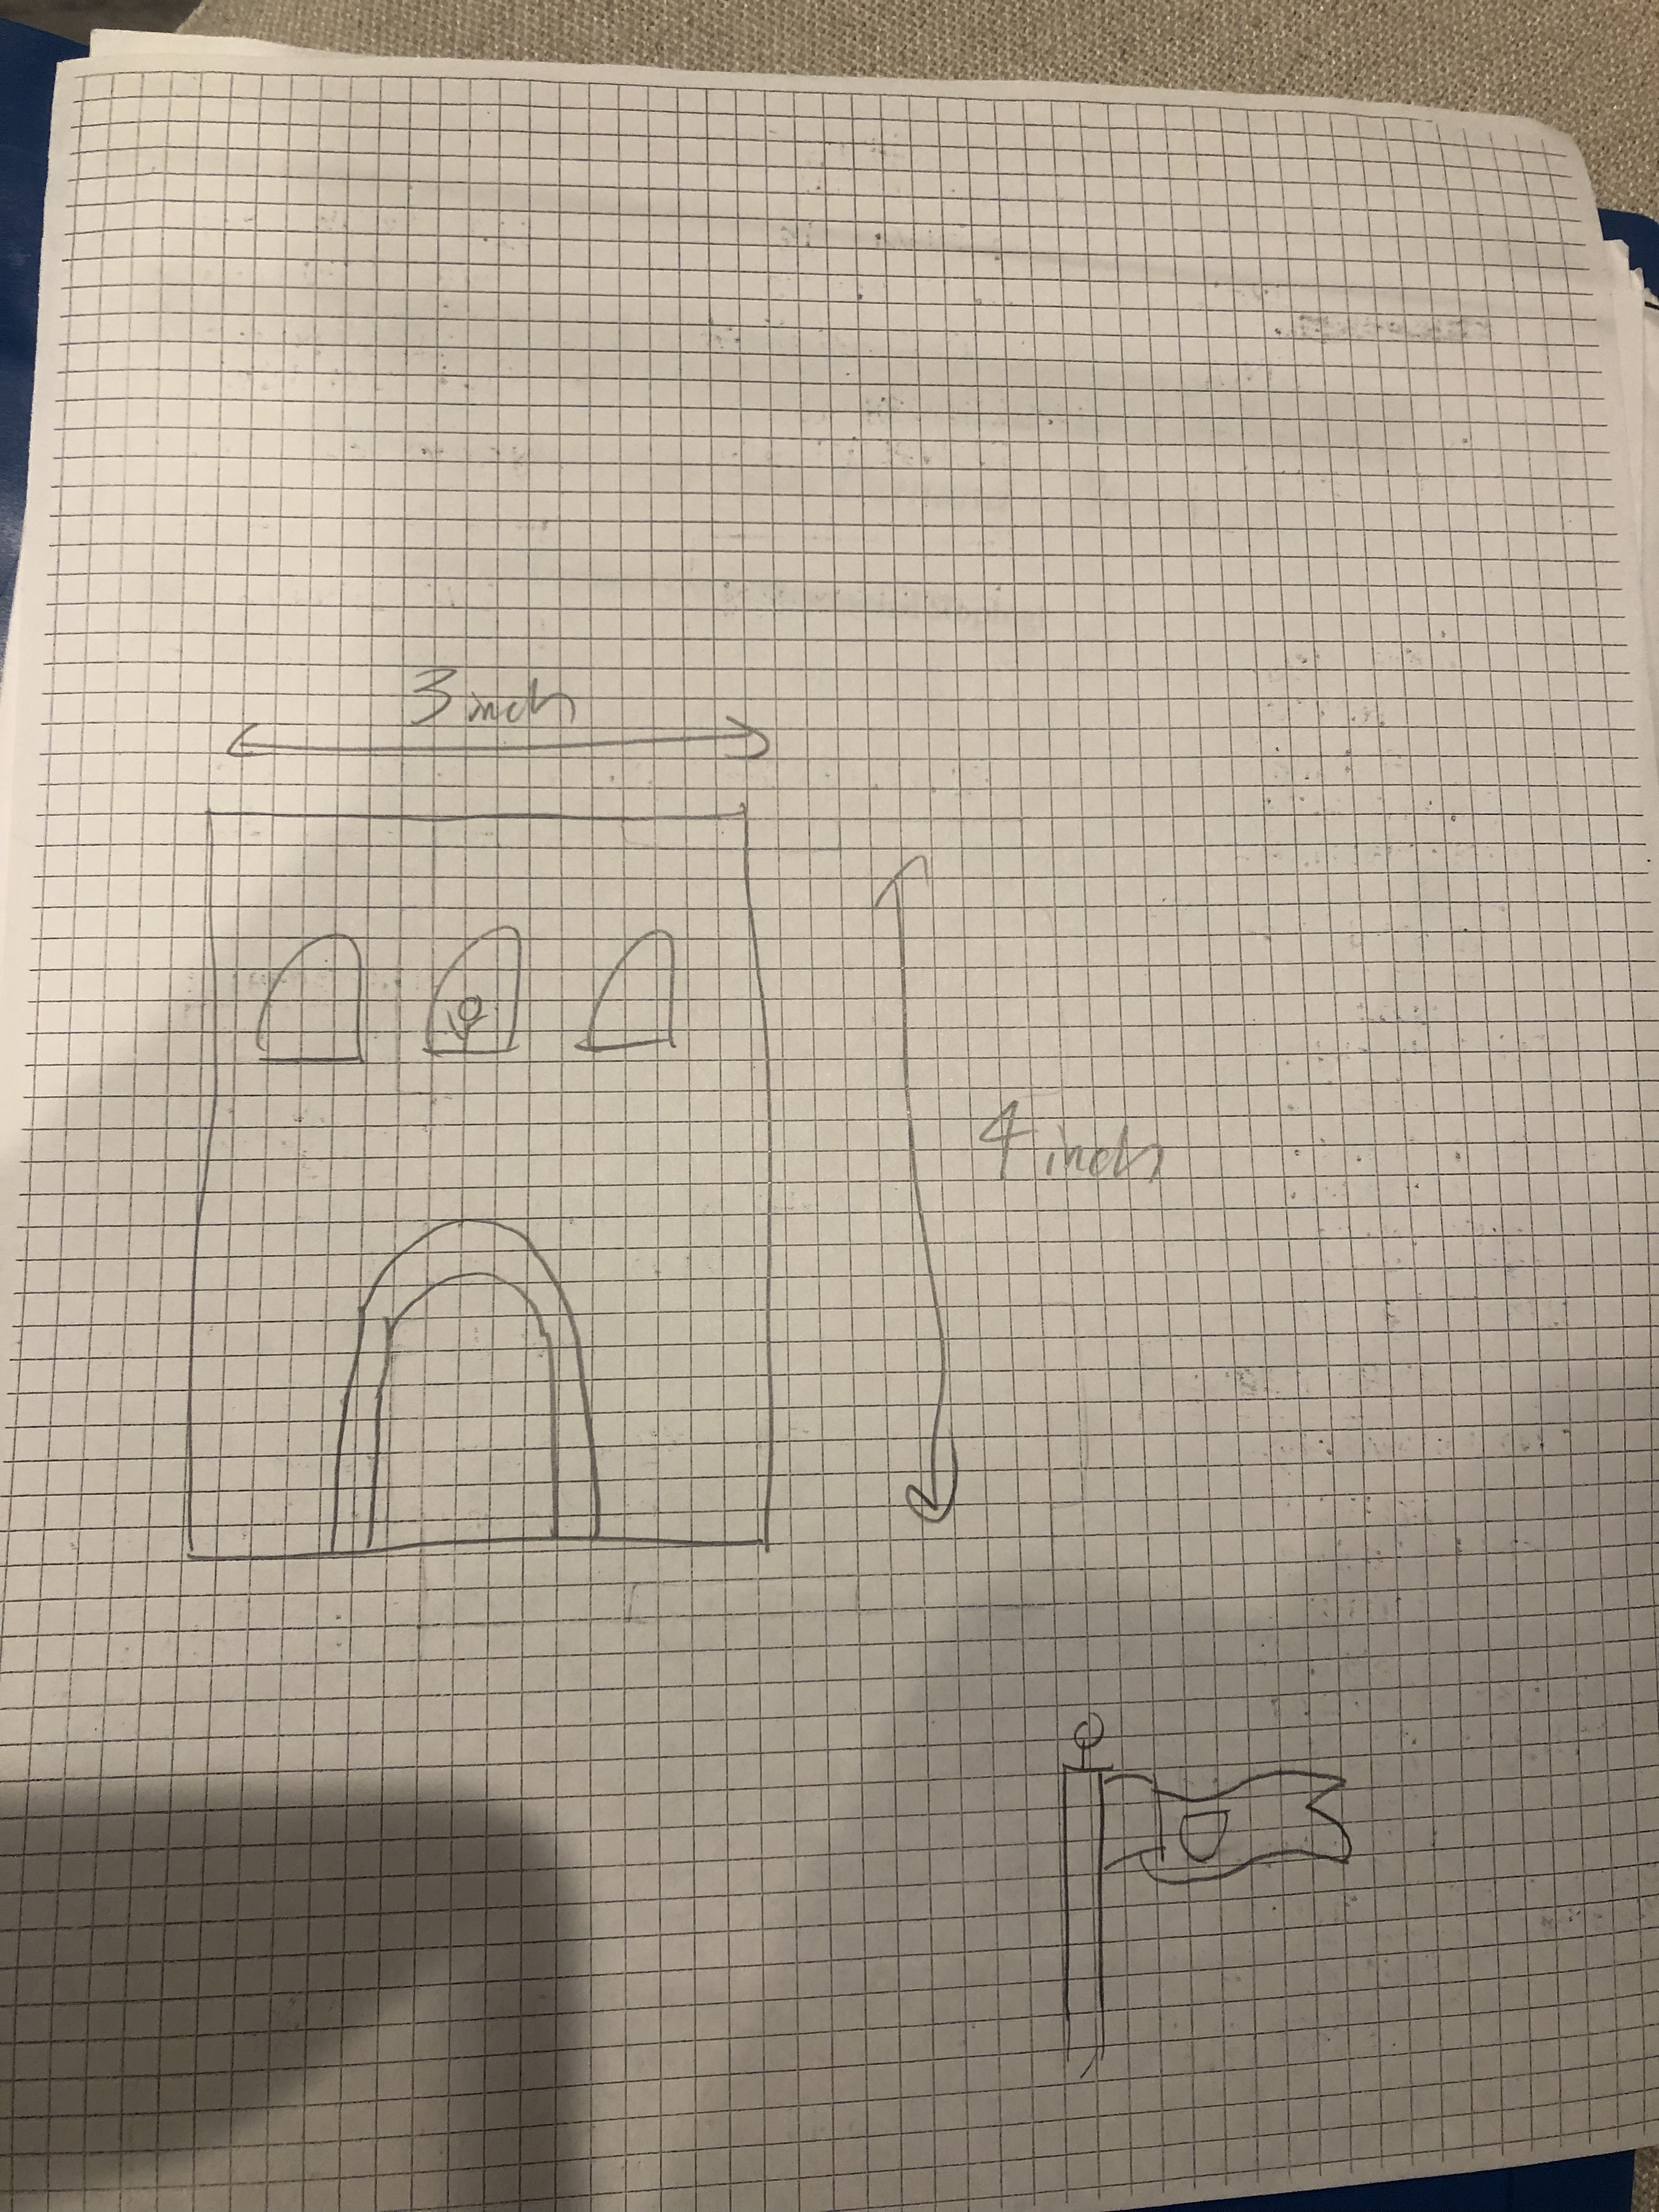 3 inch
4 inch